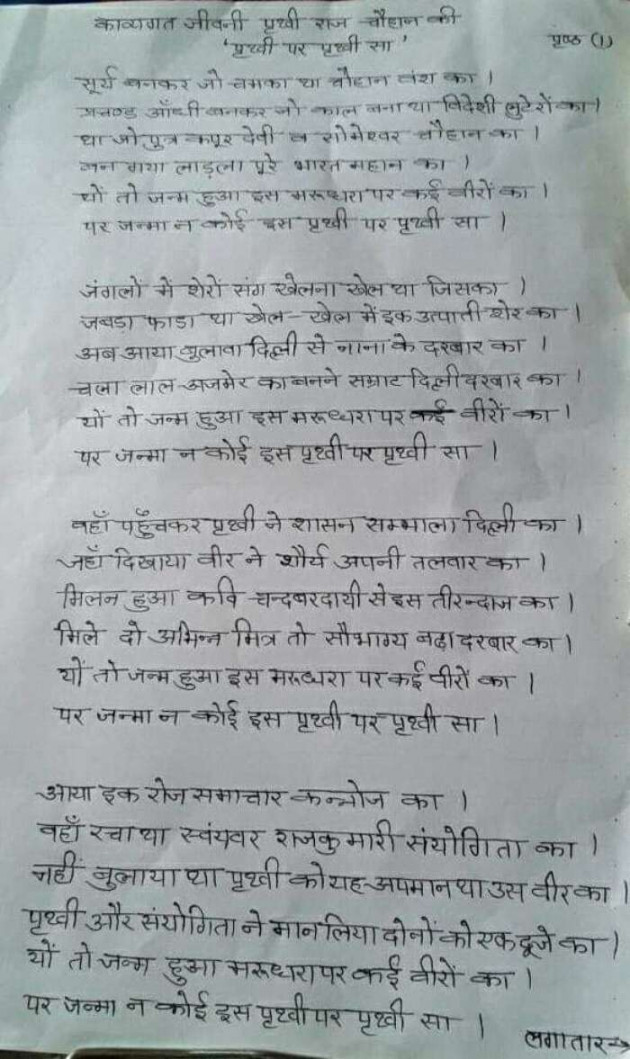 काव्यगत जीवनी पृथ्वी राज चौहान की
'पृथ्वी पर पृथ्वी सा'
पृष्ठ (1)
सूर्य बनकर जो चमका था चौहान वंश का ।
प्रचण्ड आँधी बनकर जो काल बना था विदेशी लुटेरों का ।
था जो पुत्र कपूर देवी व सोमेश्वर चौहान का ।
बन गया लाड़ला पूरे भारत महान का ।
यों तो जन्म हुआ इस मरूधरा पर कई वीरों का ।
पर जन्मा न कोई इस पृथ्वी पर पृथ्वी सा ।
जंगलों में शेरों संग खेलना खेल था जिसका ।
जबड़ा फाडा था खेल-खेल में इक उत्पाती शेर का ।
अब आया बुलावा दिल्ली से नाना के दरबार का ।
चला लाल अजमेर का बनने सम्राट दिल्ली दरबार का ।
यों तो जन्म हुआ इस मरूधरा पर कई वीरों का ।
पर जन्मा न कोई इस पृथ्वी पर पृथ्वी सा ।
वहाँ पहुँचकर पृथ्वी ने शासन सम्भाला दिल्ली का ।
जहाँ दिखाया वीर ने शौर्य अपनी तलवार का ।
मिलन हुआ कवि चन्दबरदायी से इस तीरन्दाज का ।
मिले दो अभिन्न मित्र तो सौभाग्य बढ़ा दरबार का ।
यों तो जन्म हुआ इस मरूधरा पर कई वीरों का ।
पर जन्मा न कोई इस पृथ्वी पर पृथ्वी सा ।
आया इक रोज समाचार कन्नोज का ।
वहाँ रचा था स्वंयवर राजकुमारी संयोगिता का ।
नहीं बुलाया था पृथ्वी को यह अपमान था उस वीर का ।
पृथ्वी और संयोगिता ने मान लिया दोनों को एक दूजे का ।
यों तो जन्म हुआ मरूधरा पर कई वीरों का ।
पर जन्मा न कोई इस पृथ्वी पर पृथ्वी सा ।
लगातार→